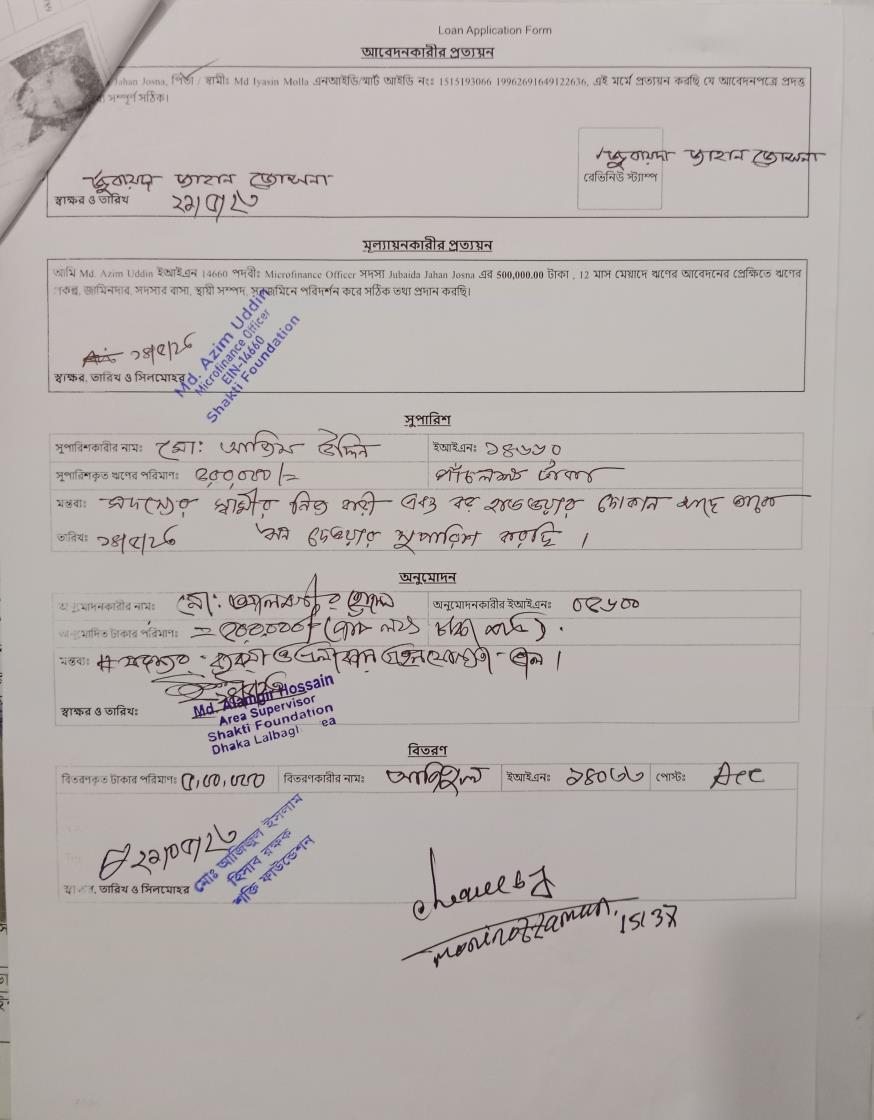 Loan Application Form
আবেদনকারীর প্রত্যয়ন
Jahan Josna, পিতা / স্বামীঃ Md Iyasin Molla এনআইডি/স্মার্ট আইডি নংঃ 1515193066 19962691649122636, এই মর্মে প্রত্যয়ন করছি যে আবেদনপত্রে প্রদত্ত
সম্পূর্ণ সঠিক।
জুবায়দা জাহান জোসনা
রেভিনিউ স্ট্যাম্প
জুবায়দা জাহান জোসনা
স্বাক্ষর ও তারিখ
মূল্যায়নকারীর প্রত্যয়ন
আমি Md. Azim Uddin ইআইএন 14660 পদবীঃ Microfinance Officer সদস্য Jubaida Jahan Josna এর 500,000.00 টাকা , 12 মাস মেয়াদে ঋণের আবেদনের প্রেক্ষিতে ঋণের
প্রকল্প, জামিনদার, সদস্যর বাসা, স্থায়ী সম্পদ, সরেজমিনে পরিদর্শন করে সঠিক তথ্য প্রদান করছি।
Md. Azim Uddin
Microfinance Officer
EIN-14660
Shakti Foundation
স্বাক্ষর, তারিখ ও সিলমোহর
সুপারিশ
সুপারিশকারীর নামঃ মো: আজিম উদ্দিন ইআইএনঃ ১৪৬৬০
সুপারিশকৃত ঋণের পরিমাণঃ ৫০০,০০০/= পাঁচ লক্ষ টাকা
মন্তব্যঃ সদস্যের স্বামীর নিজ বাড়ী এবং বড় হার্ডওয়ার দোকান আছে
তারিখঃ ঋন দেওয়ার সুপারিশ করছি ।
অনুমোদন
অনুমোদনকারীর নামঃ মো: আলমগীর হোসেন অনুমোদনকারীর ইআইএনঃ ০৫৬০০
অনুমোদিত টাকার পরিমাণঃ = ৫০০,০০০/- (পাঁচ লক্ষ টাকা মাত্র) .
মন্তব্যঃ
Md. Alamgir Hossain
Area Supervisor
Shakti Foundation
Dhaka Lalbag ea
স্বাক্ষর ও তারিখঃ
বিতরণ
বিতরণকৃত টাকার পরিমাণঃ ৫,০০,০০০ বিতরণকারীর নামঃ আজিজুল ইআইএনঃ ১৪০৬৬ পোস্টঃ Acc
মোঃ আজিজুল ইসলাম
হিসাব রক্ষক
শক্তি ফাউন্ডেশন
স্বাক্ষর, তারিখ ও সিলমোহর
Moniruzzaman. 15137